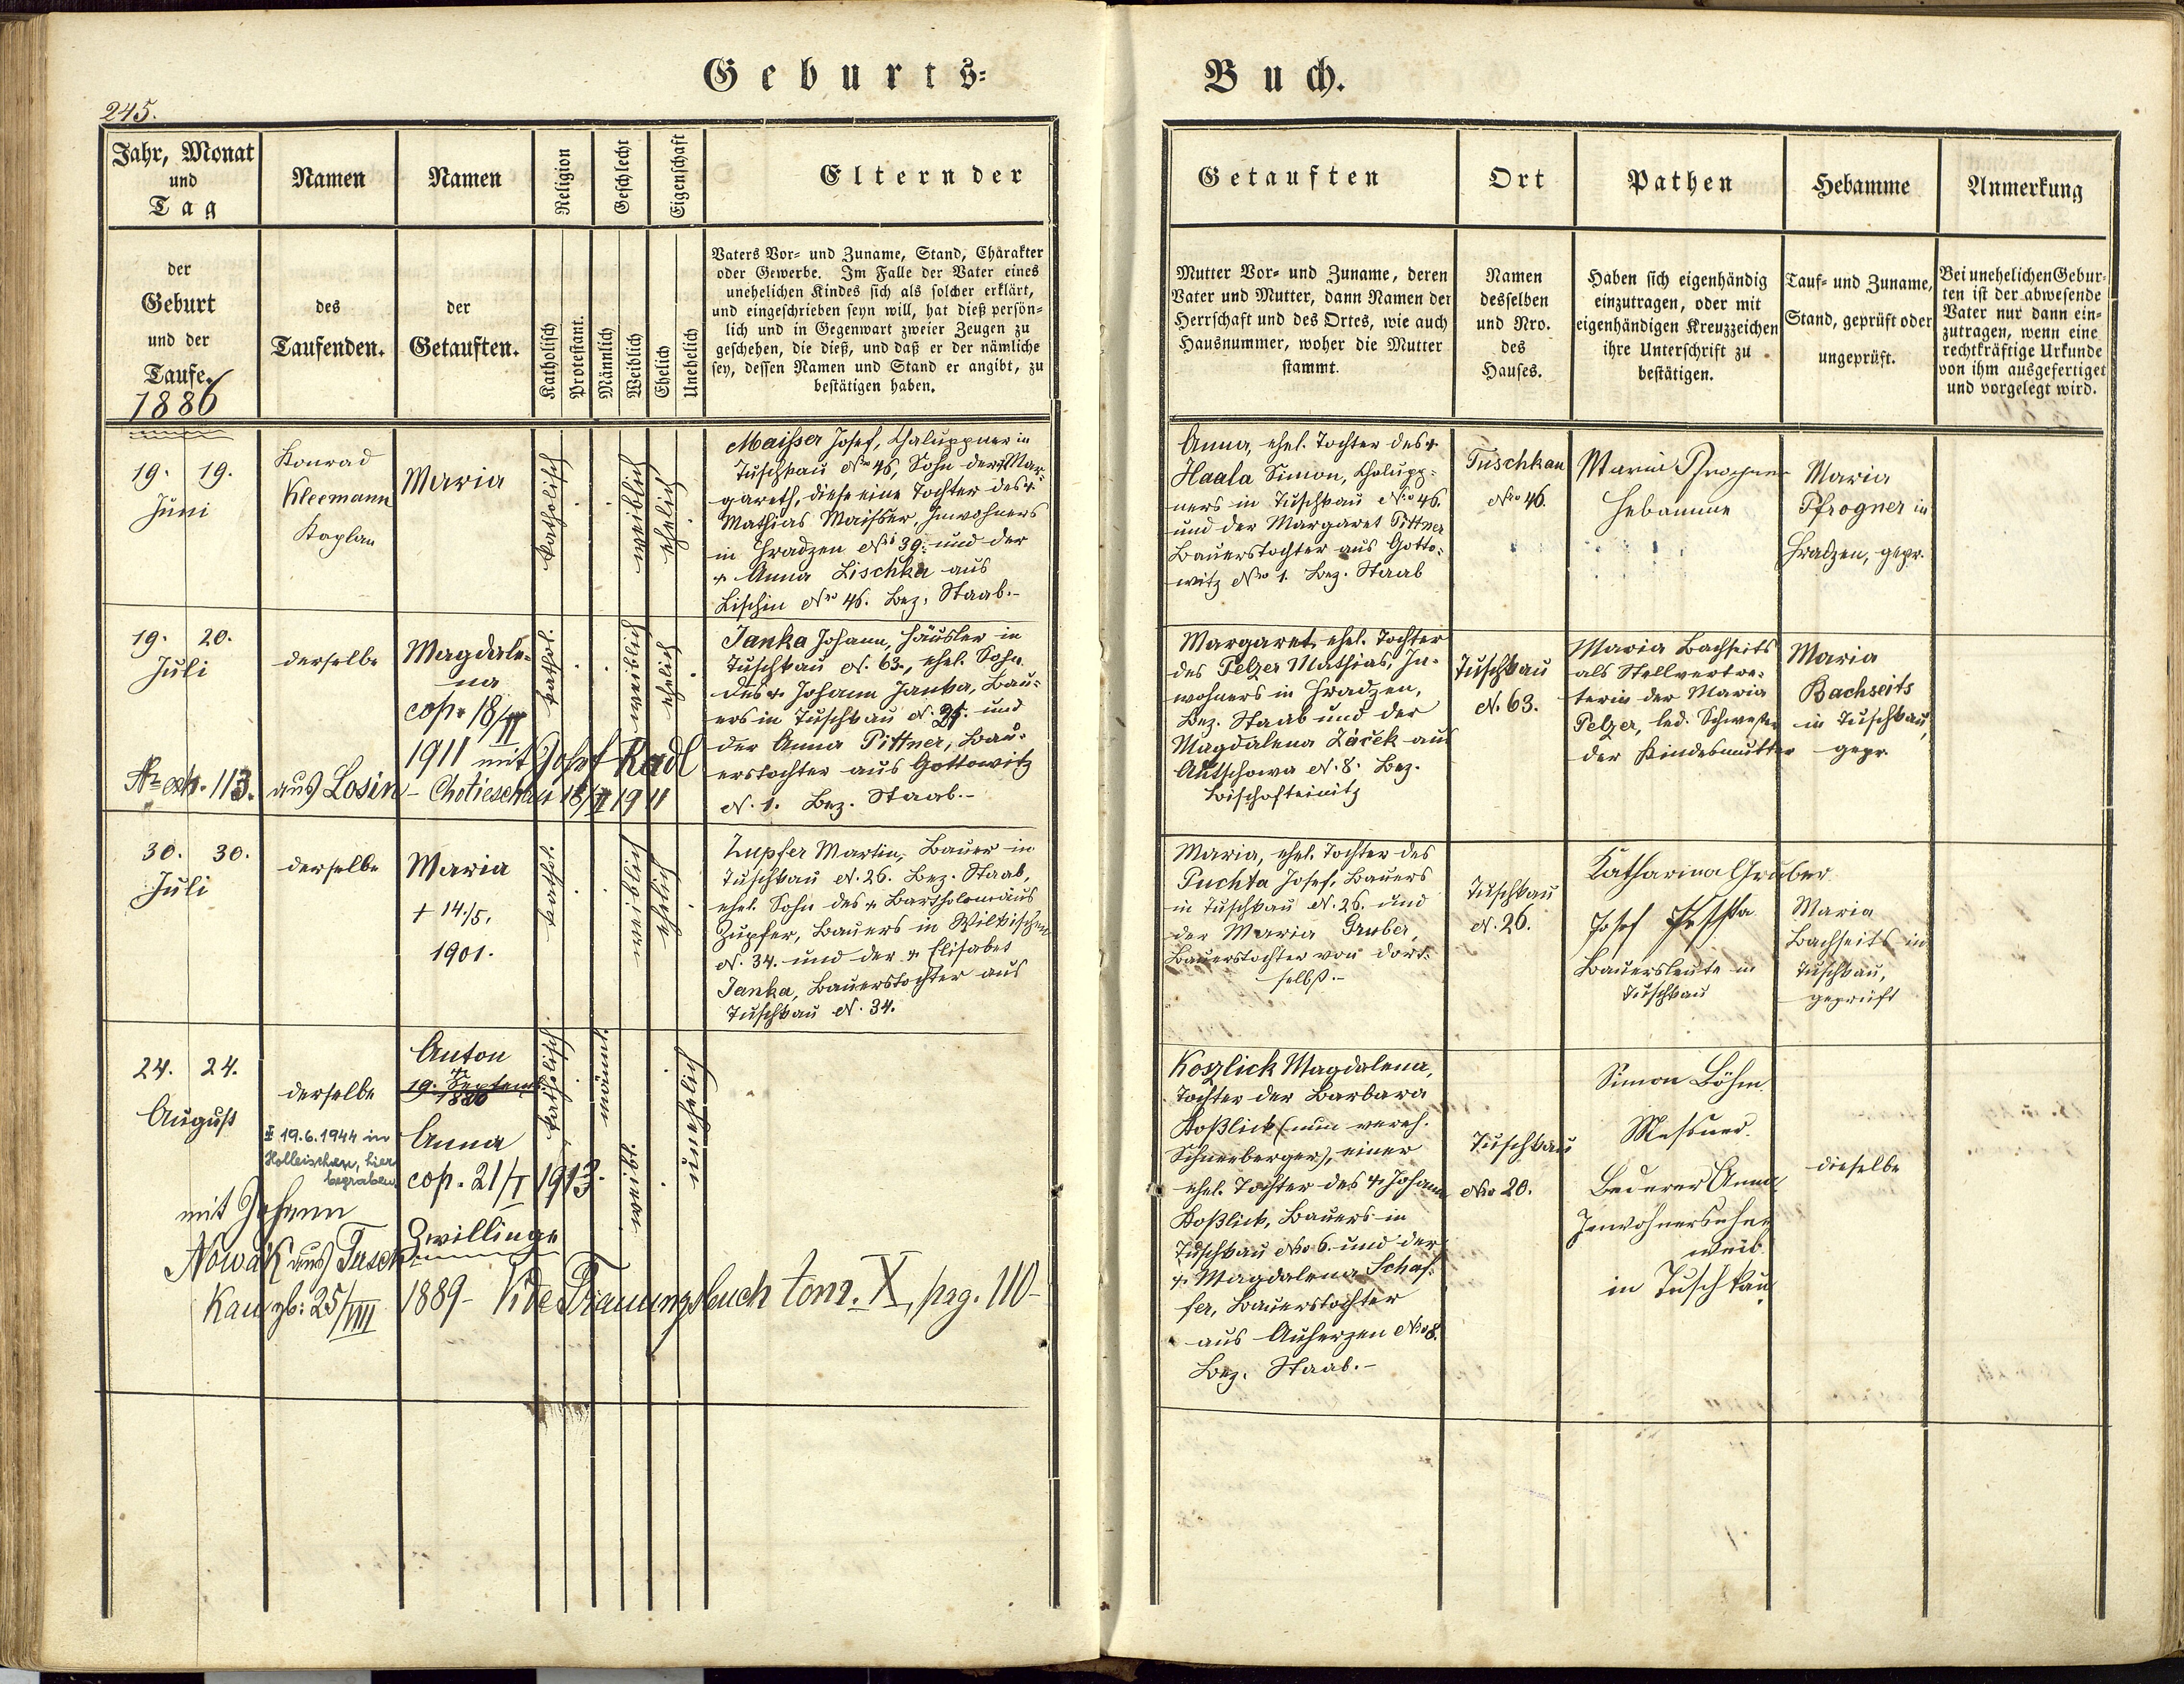 Geburts-
Buch.
245.
Jahr, Monat
und
Tag
Namen
Namen
Religion
Geschlecht
Eigenschaft
Eltern der
Getauften
Ort
Pathen
Hebamme
Anmerkung
der
Geburt
und der
Taufe.
1886
des
Taufenden.
der
Getauften.
Katholisch
Protestant.
Männlich
Weiblich
Ehelich
Unehelich
Vaters Vor- und Zuname, Stand, Charakter
oder Gewerbe. Im Falle der Vater eines
unehelichen Kindes sich als solcher erklärt,
und eingeschrieben seyn will, hat dieß persön-
lich und in Gegenwart zweier Zeugen zu
geschehen, die dieß, und daß er der nämliche
sey, dessen Namen und Stand er angibt, zu
bestätigen haben.
Mutter Vor- und Zuname, deren
Vater und Mutter, dann Namen der
Herrschaft und des Ortes, wie auch
Hausnummer, woher die Mutter
stammt.
Namen
desselben
und Nro.
des
Hauses.
Haben sich eigenhändig
einzutragen, oder mit
eigenhändigen Kreuzzeichen
ihre Unterschrift zu
bestätigen.
Tauf- und Zuname,
Stand, geprüft oder
ungeprüft.
Bei unehelichen Gebur-
ten ist der abwesende
Vater nur dann ein-
zutragen, wenn eine
rechtkräftige Urkunde
von ihm ausgefertiget
und vorgelegt wird.
19. 19.
Juni
Konrad
Kleemann
Kaplan
Maria
katholisch
weiblich
ehelich
Maisser Josef, Chaluppner in
Tuschkau Nro 46, Sohn der † Mar-
gareth, diese eine Tochter des †
Mathias Maisser, Inwohners
in Hradzen Nro 39. und der
† Anna Lischka aus
Lischin Nro 46. Bez. Staab.-
Anna, ehel. Tochter des †
Haala Simon, Chalupp-
ners in Tuschkau Nro 46.
und der Margaret Pittner
Bauerstochter aus Gotto-
witz Nro 1. Bez. Staab
Tuschkau
Nro 46.
Maria Pfrogner
Hebamme
Maria
Pfrogner in
Hradzen, gepr.
19. 20.
Juli
derselbe
Magdale-
na
cop. 18/II
1911 mit Josef Radl
Nr exh. 113. aus Losin - Chotieschau 18/II 1911
kathol.
weiblich
ehelich
Janka Johann, Häusler in
Tuschkau N. 63., ehel. Sohn
des † Johann Janka, Bau-
ers in Tuschkau N. 25. und
der Anna Pittner, Bau-
erstochter aus Gottowitz
N. 1. Bez. Staab.-
Margaret, ehel. Tochter
des Pelzer Mathias, In-
wohners in Hradzen,
Bez. Staab und der
Magdalena Záček aus
Autschowa N. 8. Bez.
Bischofteinitz
Tuschkau
N. 63.
Maria Bachseits
als Stellvertre-
terin der Maria
Pelzer, led. Schwester
der Kindesmutter
Maria
Bachseits
in Tuschkau,
gepr.
30. 30.
Juli
derselbe
Maria
† 14./5.
1901.
kathol.
weiblich
ehelich
Zupfer Martin, Bauer in
Tuschkau N. 26. Bez. Staab,
ehel. Sohn des † Bartholomäus
Zupfer, Bauers in Wilkischen
N. 34. und der † Elisabet
Janka, Bauerstochter aus
Tuschkau N. 34.
Maria, ehel. Tochter des
Puchta Josef, Bauers
in Tuschkau N. 26. und
der Maria Gruber,
Bauerstochter von dort-
selbst.-
Tuschkau
N. 26.
Katharina Gruber
Josef
Bauersleute in
Tuschkau
Maria
Bachseits in
Tuschkau,
geprüft
24. 24.
August
derselbe
Anton
† 19. Septem
1886
Anna
cop. 21/I 1913.
Zwillinge
19.6.1944 in
Holleischen, hier
begraben.
mit Johann
Nowák aus Tusch-
kau gb: 25/VIII 1889 - Vide Trauungsbuch tom. X, pag. 110-
katholisch
männl.
weibl.
unehelich
Koszlick Magdalena,
Tochter der Barbara
Koßlick (nun vereh.
Schneeberger), einer
ehel. Tochter des † Johann
Koßlick, Bauers in
Tuschkau Nro 6. und der
† Magdalena Schaf-
fer, Bauerstochter
aus Auherzen Nro 8.
Bez. Staab.-
Tuschkau
Nro 20.
Simon Böhm
Messner.
Bederer Anna
Inwohners
weib
in Tuschkau
dieselbe